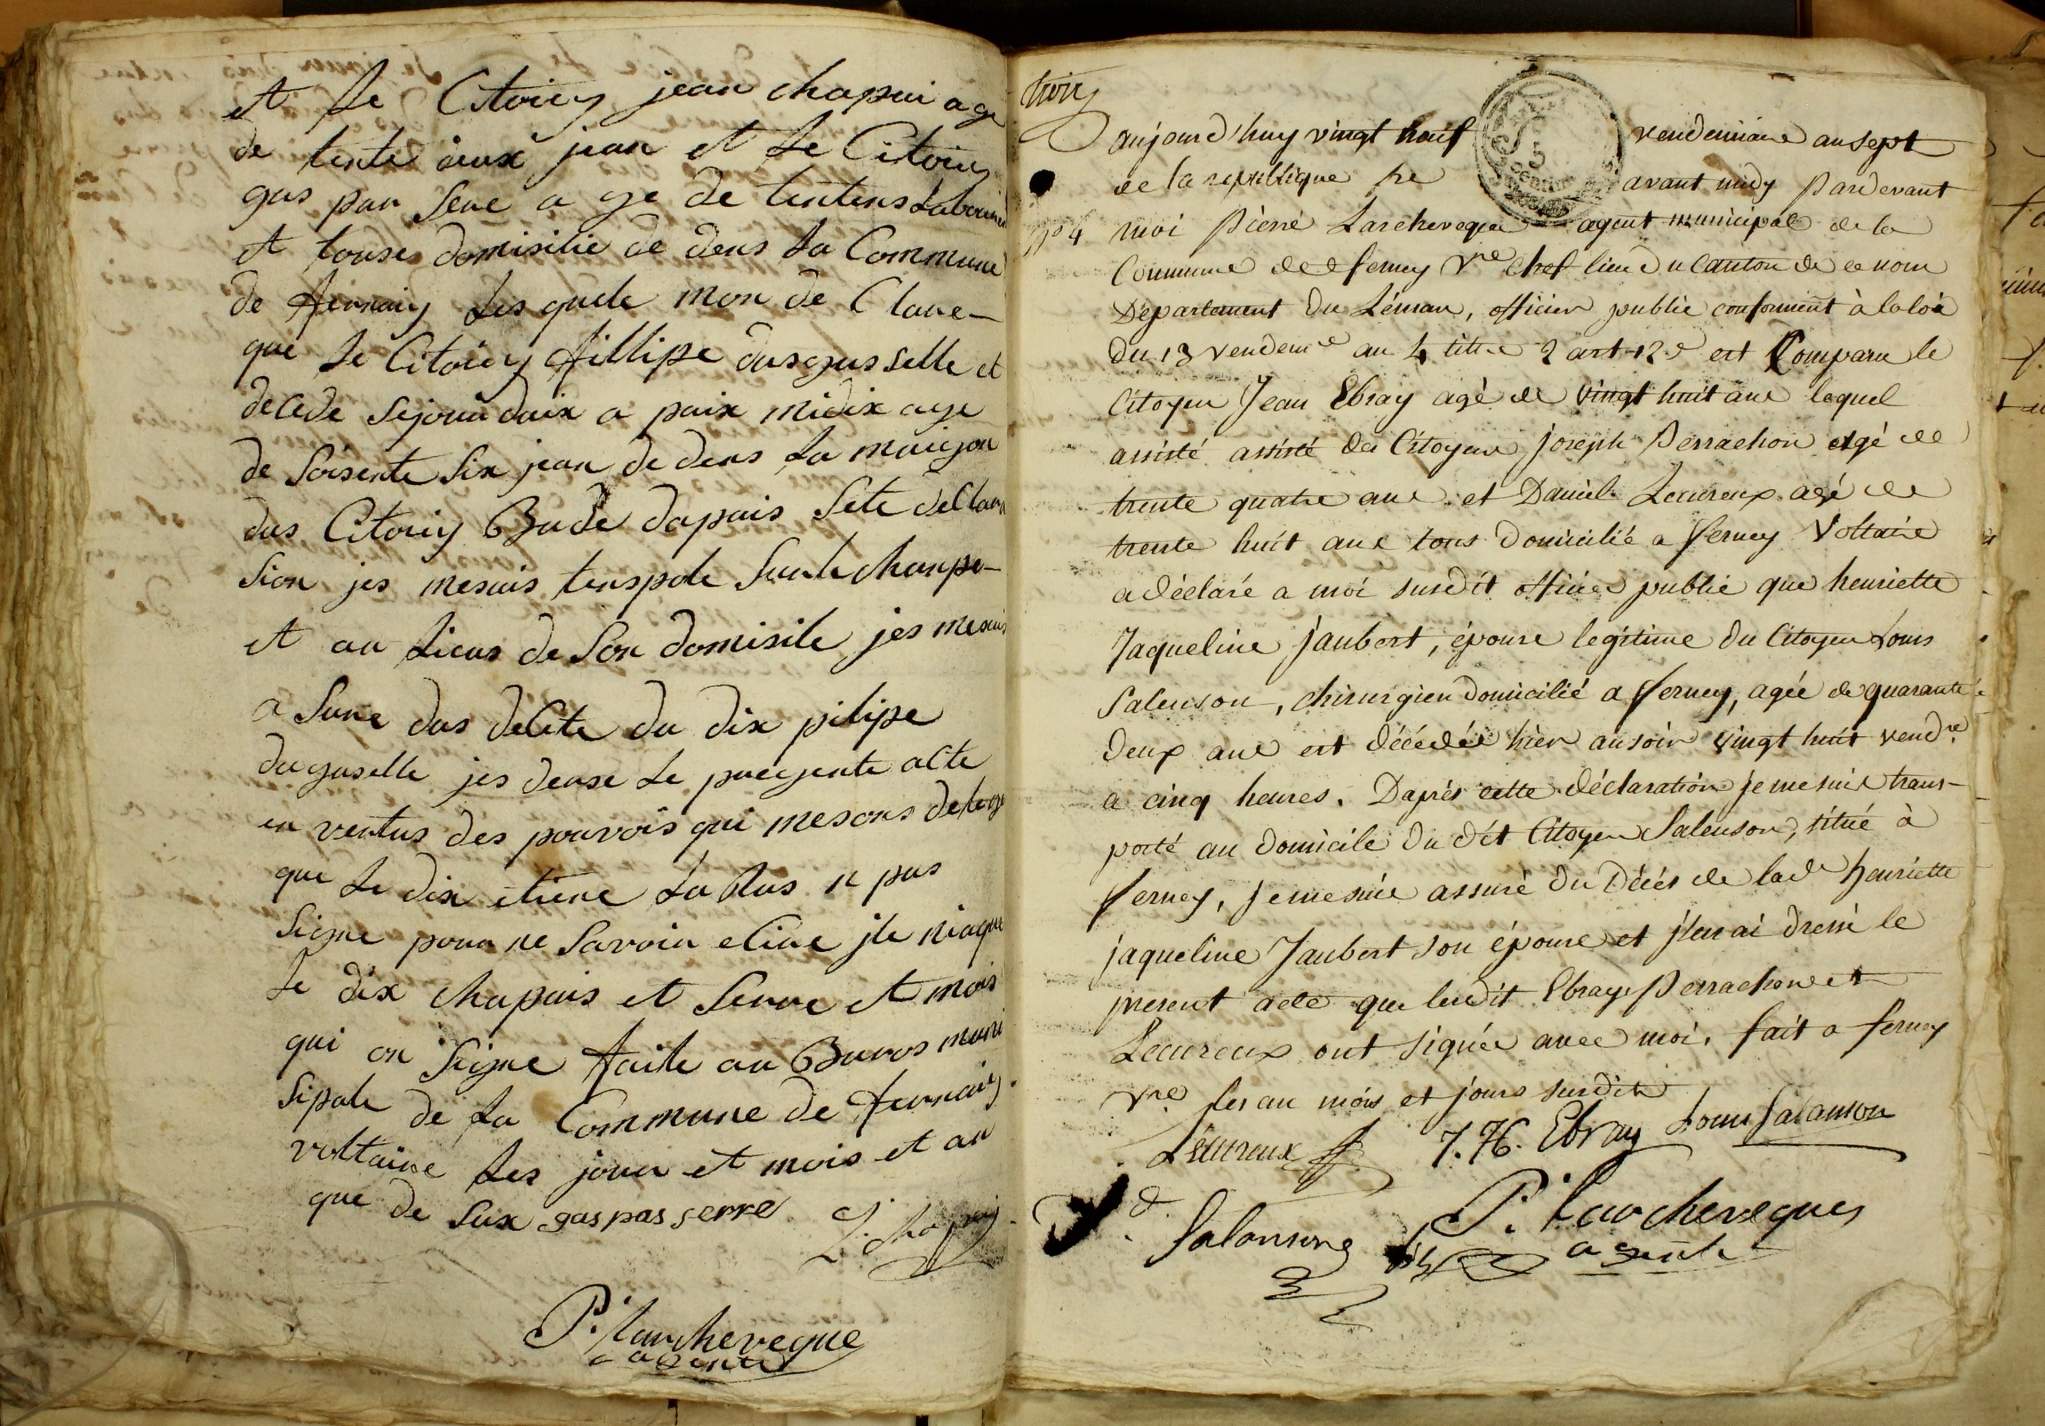 et le Citoiey jean chapui age
de tente deux jean et le Citoiey
gas par Sene a ge de tentens Laboure
et touse domisilie de dens la Commune
de fernaiy les quele mon de Clare-
que le Citoiey fillipe dusgusselle et
decede sejourdaix a paix midix age
de soisente six jean de dens la maiyon
dus Citoiy Bude dapuis sete declara
sion jes mesuis tenspole surle chanpe-
et au lieus de son domisile jes mesuis
a sure dus decete du dix pilipe
duguselle jes deuse le preyente alte
en vertus des pouvois qui mesons delege
que le dix etiene la
pas
signe pour ne savoir eCire jle niaque
le dix chapuis et Serre et mois
qui on signe faite au Buros muni
sipale de la Commune de fernaiy
voltaire les jour et mois et an
que de sux gaspas serre J. chapuis
P. larcheveque
agente
trois
aujourd'huy vingt neuf vendemiaire an sept
de la republique fre avant midy pardevant
No 4 moi Pierre Larcheveque agent municipal de la
Commune de ferney Vre chef lieu du canton de ce nom
Département du Léman, officier public conforment à la loi
du 13 vendemre an 4 titre 2 art 12e est Comparu le
Citoyen Jean Ebray agé de vingt huit ans lequel
assisté assisté des Citoyens joseph Perrachon agé de
trente quatre ans et Daniel Lecureux agé de
trente huit ans tous domicilié a ferney Voltaire
a déclaré a moi susdit officier public que henriette
Jaqueline Jaubert, épouse legitime du Citoyen Louis
Salenson, chirurgien domicilié a ferney, agée de quarante
deux ans est décédée hier au soir vingt huit vendre
a cinq heures. Daprès cette déclaration je me suis trans-
porté au domicile du dit Citoyen Salenson, situé à
ferney, je me suis assuré du Décés de lade henriette
jaqueline Jaubert son épouse et j'en ai dressé le
present acte que lesdit Ebray Perrachon et
Lecureux ont signée avec moi, fait a ferney
Vre les an mois et jours susdits
Lecureux J. H. Ebray Louis Salanson
d. Salansong P. Larcheveque
agente